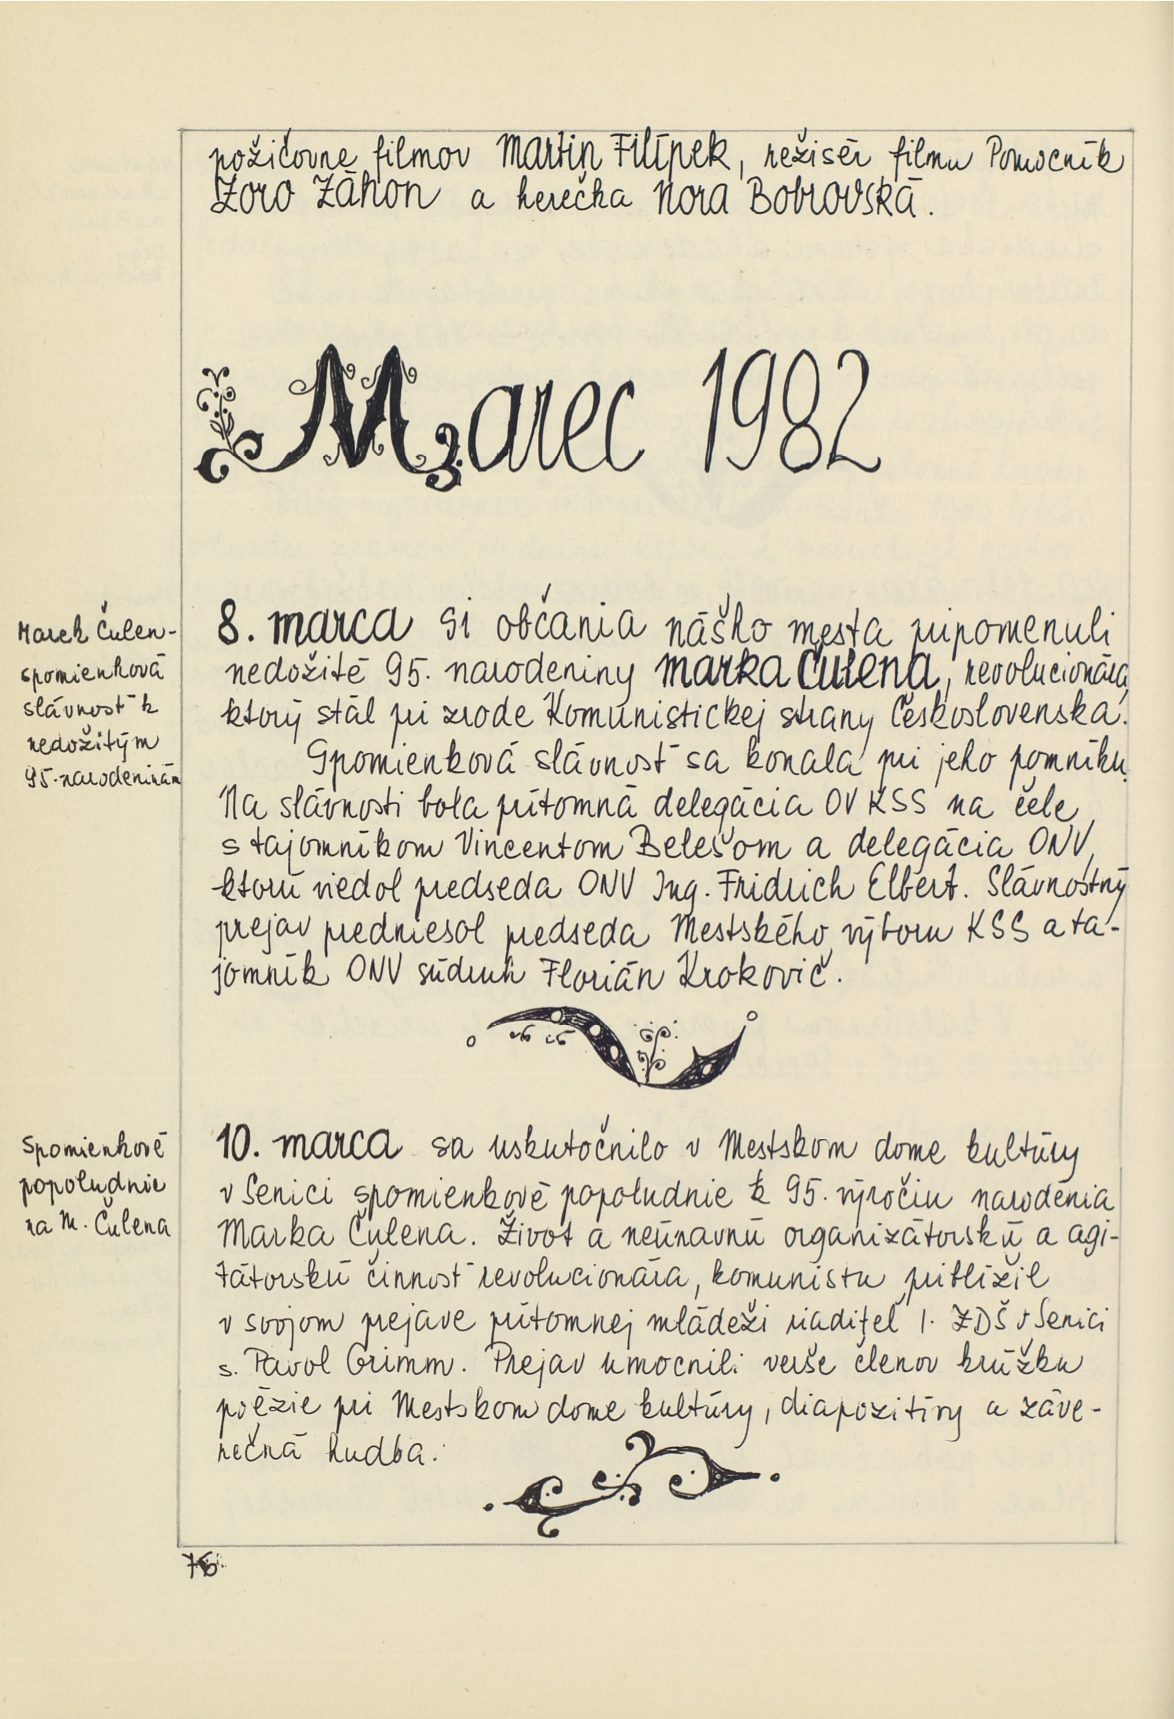 požičovne filmov Martin Filípek, režisér filmu Pomocník
Zoro Záhon a herečka Nora Bobrovská.
Marec 1982
Marek Čulen-
spomienková
slávnosť k
nedožitým
95. narodeninám
8. marca si občania nášho mesta pripomenuli
nedožité 95. narodeniny Marka Čulena, revolucionára,
ktorý stál pri zrode Komunistickej strany Československa.
Spomienková slávnosť sa konala pri jeho pomníku.
Na slávnosti bola prítomná delegácia OV KSS na čele
s tajomníkom Vincentom Belešom a delegácia ONV,
ktorú viedol predseda ONV Ing. Fridrich Elbert. Slávnostný
prejav predniesol predseda Mestského výboru KSS a ta-
jomník ONV súdruh Florián Krokovič.
Spomienkové
popoludnie
na M. Čulena
10. marca sa uskutočnilo v Mestskom dome kultúry
v Senici spomienkové popoludnie k 95. výročiu narodenia
Marka Čulena. Život a neúnavnú organizátorskú a agi-
tátorskú činnosť revolucionára, komunistu priblížil
v svojom prejave prítomnej mládeži riaditeľ I. ZDŠ v Senici
s. Pavol Grimm. Prejav umocnili verše členov krúžku
poézie pri Mestskom dome kultúry, diapozitívy a záve-
rečná hudba.